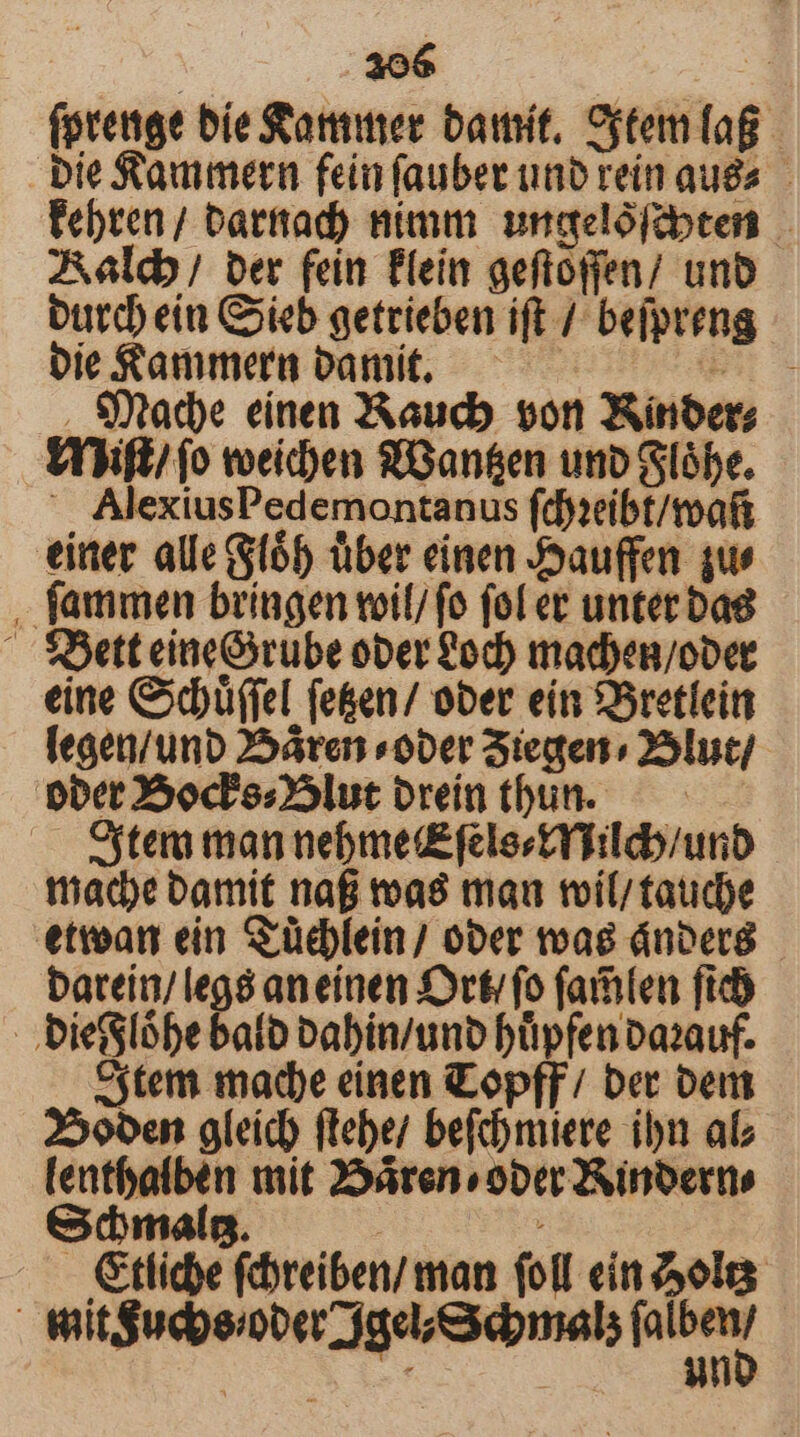 206
ſprenge die Kammer damit. Item laß
die Kammern fein ſauber und rein aus⸗
kehren / darnach nimm ungeloͤſchten
Kalch / der fein klein geſtoſſen / und
durch ein Sieb getrieben iſt / beſpreng
die Kammern damit.
Mache einen Rauch von Rinder⸗
Miſt / ſo weichen Wantzen und Floͤhe.
Alexius Pedemontanus ſchꝛeibt / wañ
einer alle Floͤh uͤber einen Hauffen zu⸗
ſammen bringen wil / ſo ſol er unter das
Bett eine Grube oder Loch machen / oder
eine Schuͤſſel ſetzen / oder ein Bretlein
legen / und Baͤren⸗ oder Ziegen⸗Blut /
oder Bocks⸗Blut drein thun.
Item man nehme Eſels⸗Milch / und
mache damit naß was man wil / tauche
etwan ein Tuͤchlein / oder was anders
darein / legs an einen Ort / ſo ſam̃len ſich
die Floͤhe bald dahin / und huͤpfen daꝛauf.
Item mache einen Topff / der dem
Boden gleich ſtehe / beſchmiere ihn al⸗
lenthalben mit Baͤren⸗ oder Rindern⸗
Schmaltz.
Etliche ſchreiben / man ſoll ein Holtz
mit Fuchs⸗ oder Igel⸗Schmalz ſalben /
und